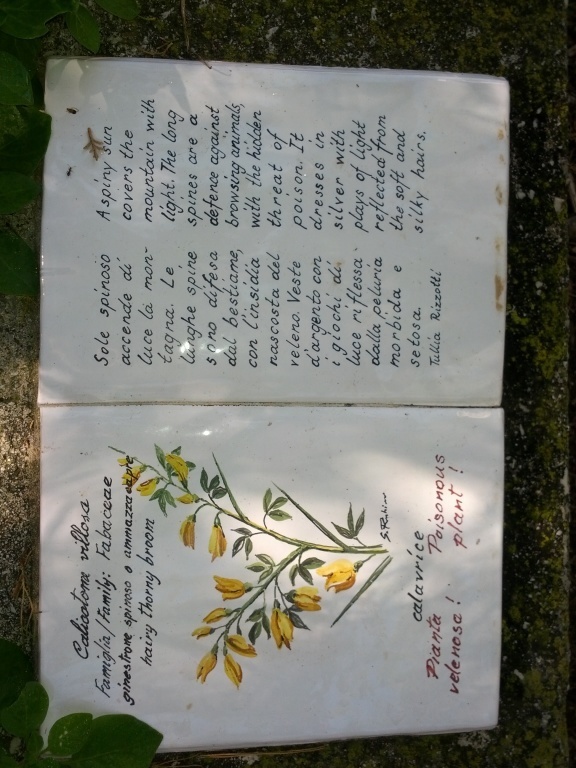 Calicotome villosa
Famiglia/Family: Fabaceae
ginestrone spinoso o ammazzacapre
hairy thorny broom
S. Rubino
calavrice
Pianta
velenosa!
Poisonous
plant!
Sole spinoso
accende di
luce la mon-
tagna. Le
lunghe spine
sono difesa
dal bestiame,
con l'insidia
nascosta del
veleno. Veste
d'argento con
i giochi di
luce riflessa
dalla peluria
morbida e
setosa.
Tullia Rizzotti
A spiny sun
covers the
mountain with
light. The long
spines are a
defence against
browsing animals,
with the hidden
threat of
poison. It
dresses in
silver with
plays of light
reflected from
the soft and
silky hairs.